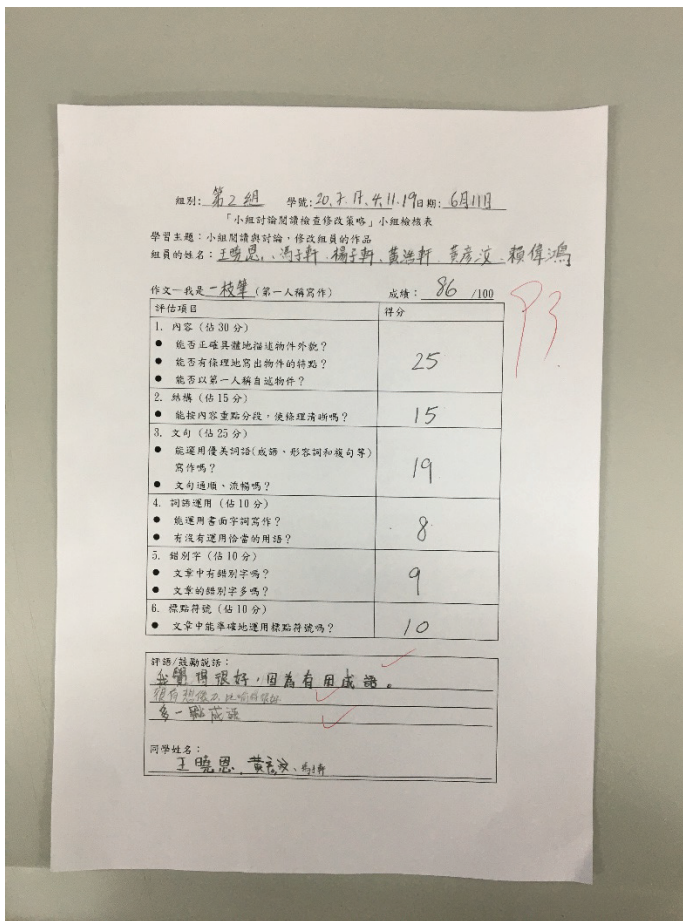 組別: 第2組 學號: 20.7.17.4.11.19 日期: 6月11日
「小組討論閱讀檢查修改策略」小組檢核表
學習主題：小組閱讀與討論，修改組員的作品
組員的姓名：王曉恩、馮子軒、楊子軒、黃浩軒、黃彥汶、賴偉鴻
作文—我是一枝筆(第一人稱寫作) 成績： 86 /100
P3
評估項目 得分
1. 內容 (佔30分)
● 能否正確具體地描述物件外貌？
● 能否有條理地寫出物件的特點？
● 能否以第一人稱自述物件？
25
2. 結構 (佔15分)
● 能按內容重點分段，使條理清晰嗎？
15
3. 文句 (佔25分)
● 能運用優美詞語(成語、形容詞和複句等)
寫作嗎？
● 文句通順、流暢嗎？
19
4. 詞語運用 (佔10分)
● 能運用書面字詞寫作？
● 有沒有運用恰當的用語？
8
5. 錯別字 (佔10分)
● 文章中有錯別字嗎？
● 文章的錯別字多嗎？
9
6. 標點符號 (佔10分)
● 文章中能準確地運用標點符號嗎？
10
評語/鼓勵說話：
我覺得很好，因為有用成語。
很有想像力
多一點成語
同學姓名：
王曉恩、黃彥汶、馮子軒